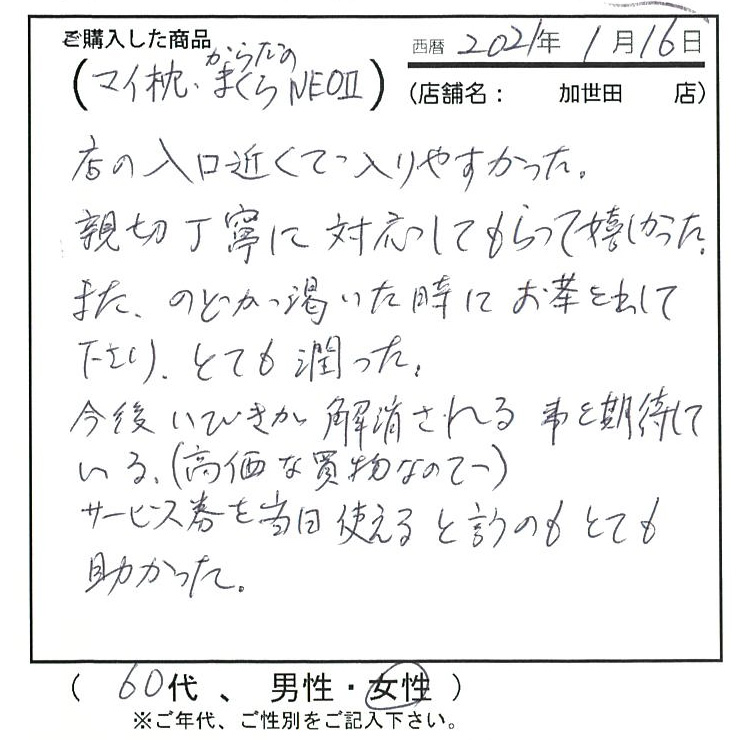 ご購入した商品
西暦 2021年 1月16日
からだの
(マイ枕、まくらNEOⅡ)
(店舗名： 加世田 店)
店の入口近くで入りやすかった。
親切丁寧に対応してもらって嬉しかった。
また、のどが渇いた時にお茶を出して
下さり、とても潤った。
今後いびきが解消される事を期待して
いる。(高価な買物なので)
サービス券を当日使えると言うのもとても
助かった。
( 60代 、 男性・女性 )
※ご年代、ご性別をご記入下さい。